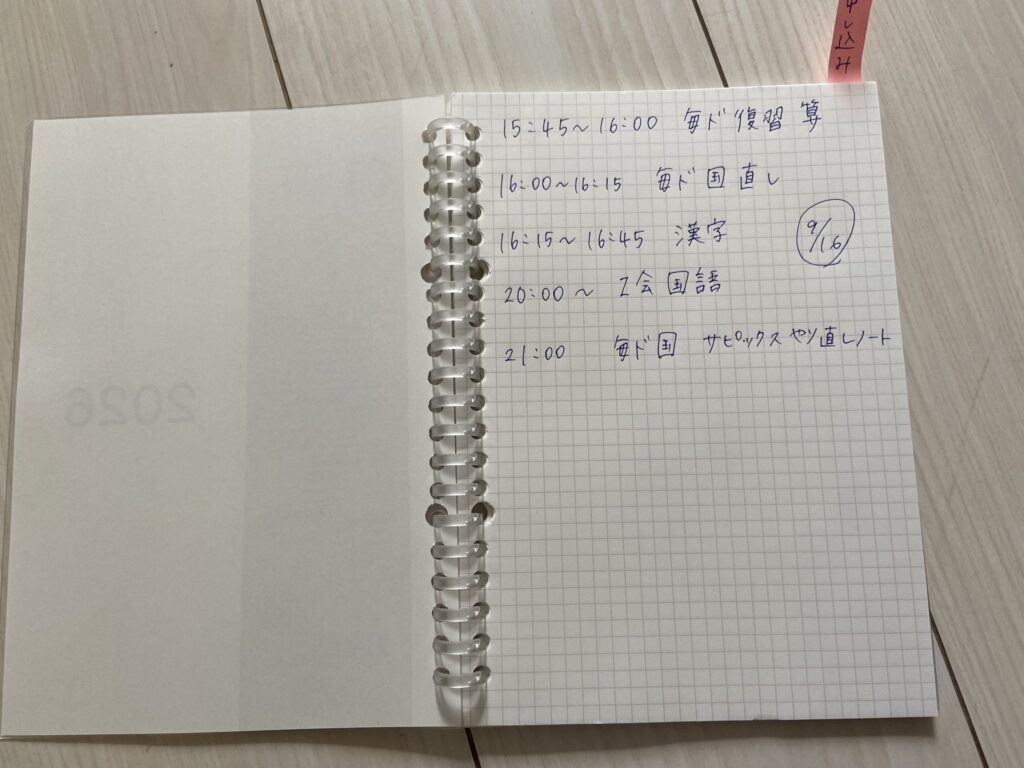 し込み
15:45〜16:00 毎ド復習 算
16:00〜16:15 毎ド国直し
16:15〜16:45 漢字
9/16
20:00〜 Z会国語
21:00 毎ド国 サピックスやり直しノート
2026